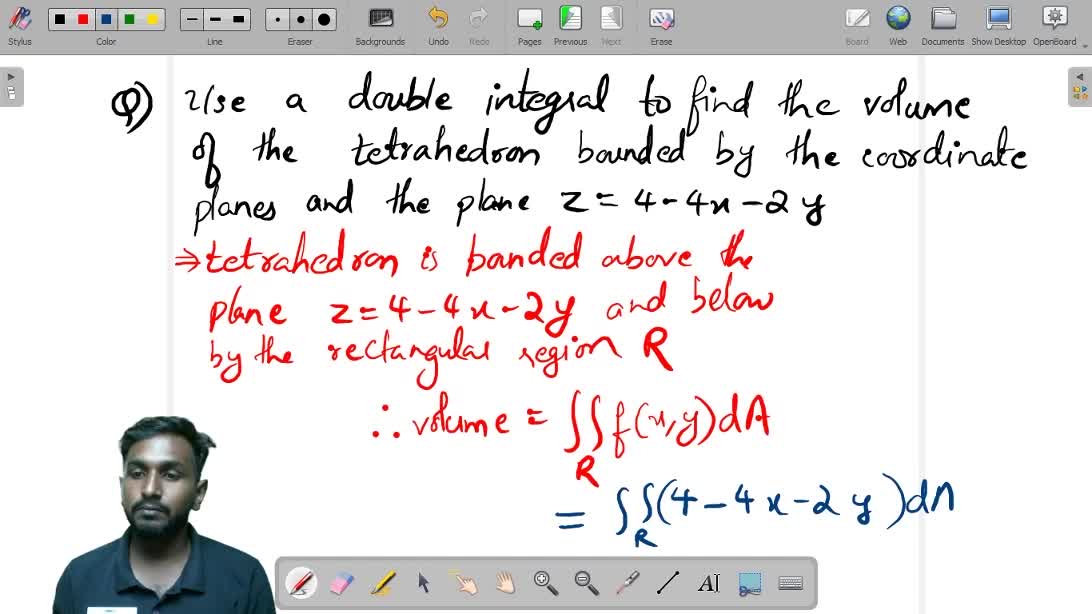 Stylus
Color
Line
Eraser
Backgrounds
Undo
Redo
Pages
Previous
Next
Erase
Board
Web
Documents
Show Desktop
OpenBoard
Q) Use a double integral to find the volume
of the tetrahedron bounded by the coordinate
planes and the plane z = 4 - 4x - 2y
⇒ tetrahedron is banded above the
plane z = 4 - 4x - 2y and below
by the rectangular region R
∴ volume = ∬_R f(x,y) dA
= ∬_R (4 - 4x - 2y) dA